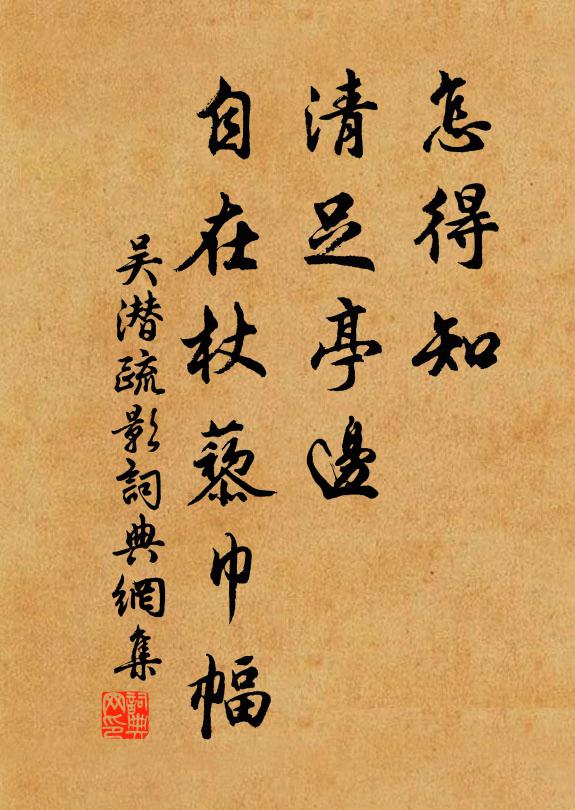 怎得知
清足亭邊
自在杖藜巾幅
吴潜疏影詞典網集
詞典網印